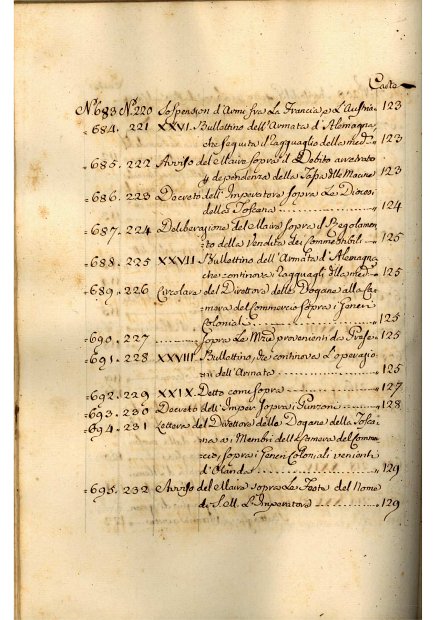 Carte
N.º 683 N.º 220 Sospension d'Armi fra La Francia, e L'Austria 123
" 684. 221 XXVI. Bullettino dell'Armata d'Alemagna,
che seguita il ragguaglio della med.ª " 123
" 685. 222 Avviso del Maire sopra il Debito arretrato
dependenza della Tassa delle Macine 123
" 686. 223 Decreto dell'Imperatore sopra Le Diocesi
della Toscana " 124
" 687. 224 Deliberazione del Maire sopra il Regolamen-
to della Vendita dei Commestibili " 125
" 688. 225 XXVII. Bullettino dell'Armata d'Alemagna
che continova i ragguagli della med.ª " 125
" 689. 226 Circolare del Direttore delle Dogane alla Ca-
mera del Commercio sopra i Generi
Coloniali " 125
" 690. 227 Sopra Le Mzie provenienti da " 125
" 691. 228 XXVIII. Bullettino, che continova L'operazio-
ni dell'Armata " 125
" 692. 229 XXIX. Detto come sopra " 127
" 693. 230 Decreto dell'Imper. sopra i Punzoni " 128
" 694. 231 Lettera del Direttore delle Dogane della Tosca-
na a i Membri della Camera del Com-
cio, sopra i Generi Coloniali venienti
d'Olanda " 129
" 695. 232 Avviso del Maire sopra La Festa del Nome
di S. M. L'Imperatore " 129